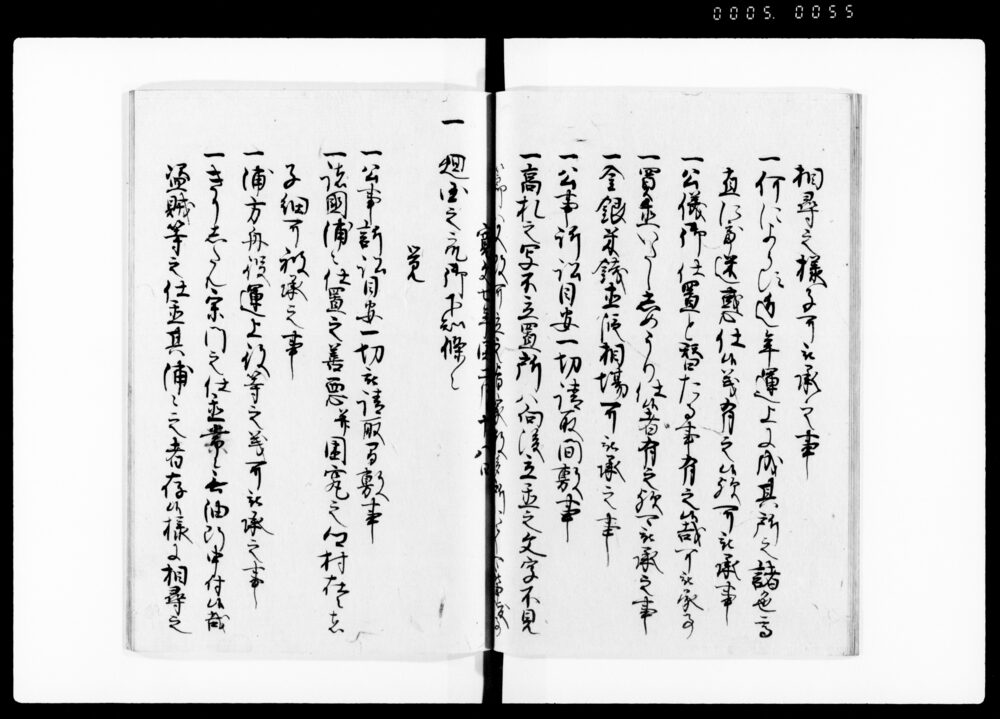 0005. 0055
相尋之様子可被承之事
一何によらす近年運上に成其所之諸色高
直に而迷惑仕候義有之候哉可被承事
一公儀御仕置と替たる事有之候哉可被承事
一買置いたししめうり仕候者有之候哉可被承之事
一金銀并銭米相場可被承之事
一公事訴訟目安一切請取間敷事
一高札之写不立置所ハ向後立之文字不見
寛文七年
一廻国之衆御下知條々
覚
一公事訴訟目安一切被請取間敷事
一諸國浦々仕置之善悪并困窮之郷村在之
子細可被承之事
一浦方舟役運上役等之義可被承之事
一きりしたん宗門之仕置常々無油断申付候哉
盗賊等之仕置其浦々之者存候様に相尋之